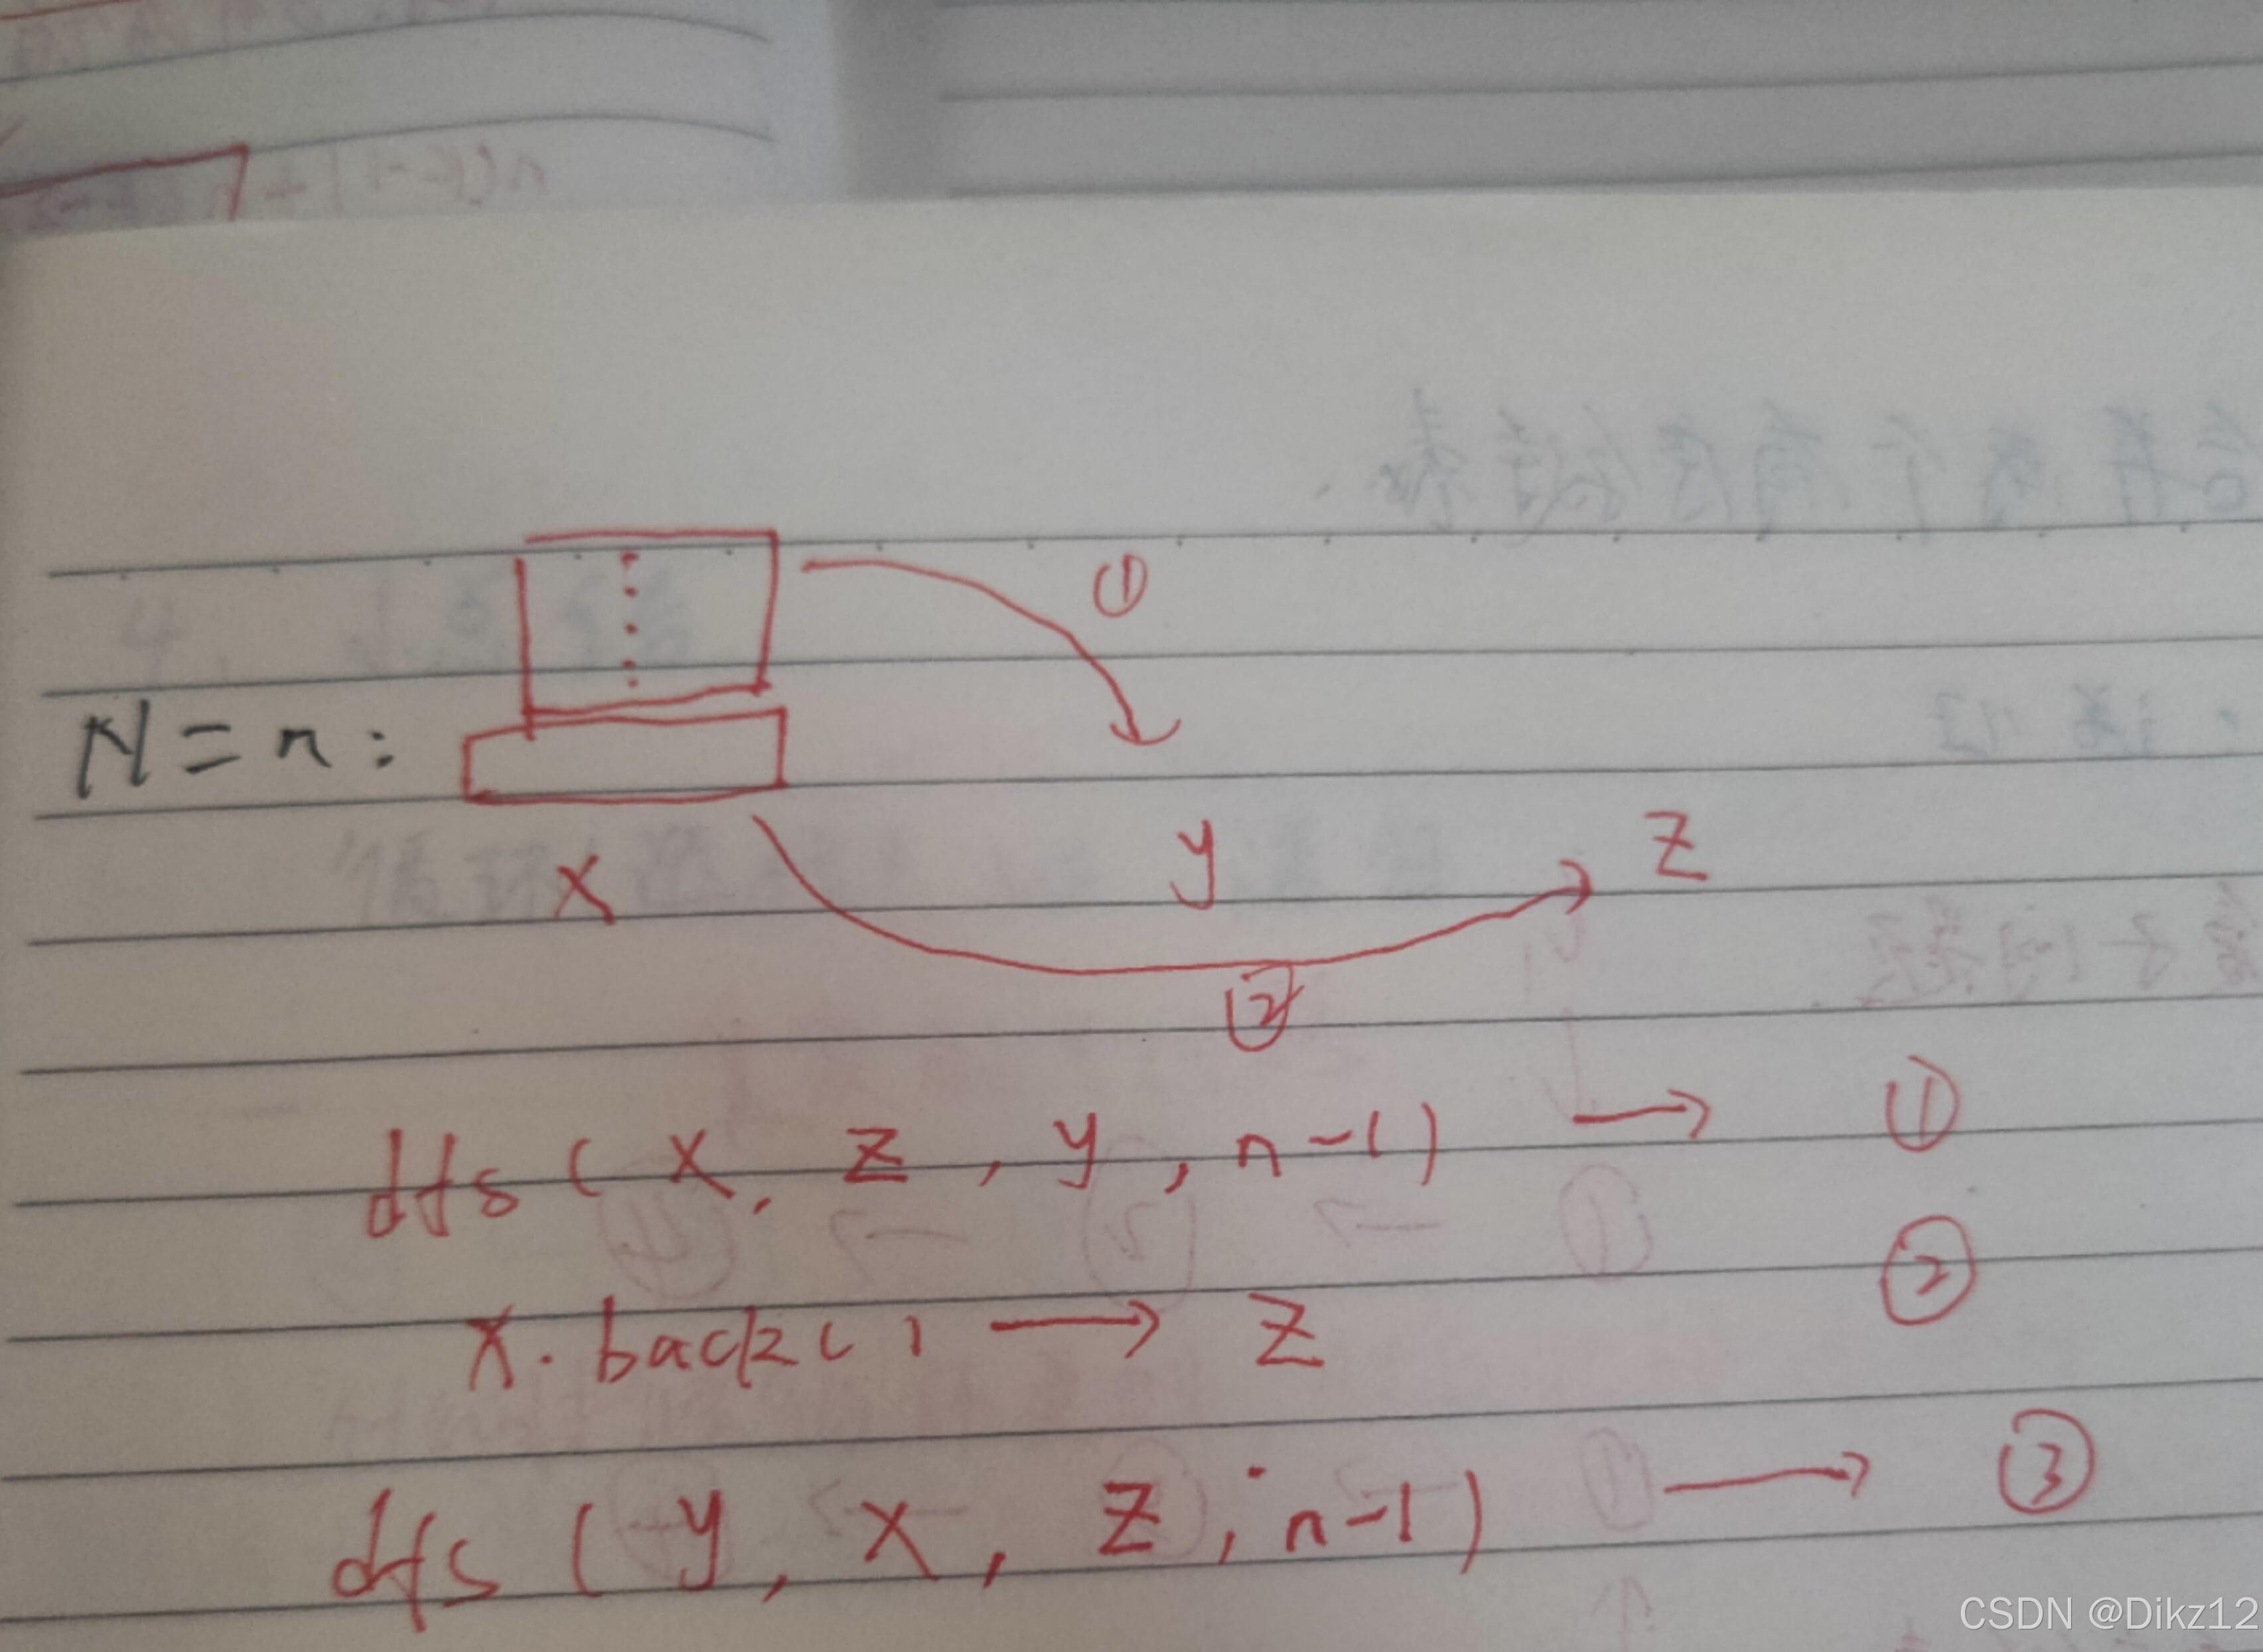 ①
N=n:
x y z
②
dfs ( x, z, y, n-1) → ①
x.back() → z ②
dfs ( y, x, z, n-1) → ③
CSDN @Dikz12